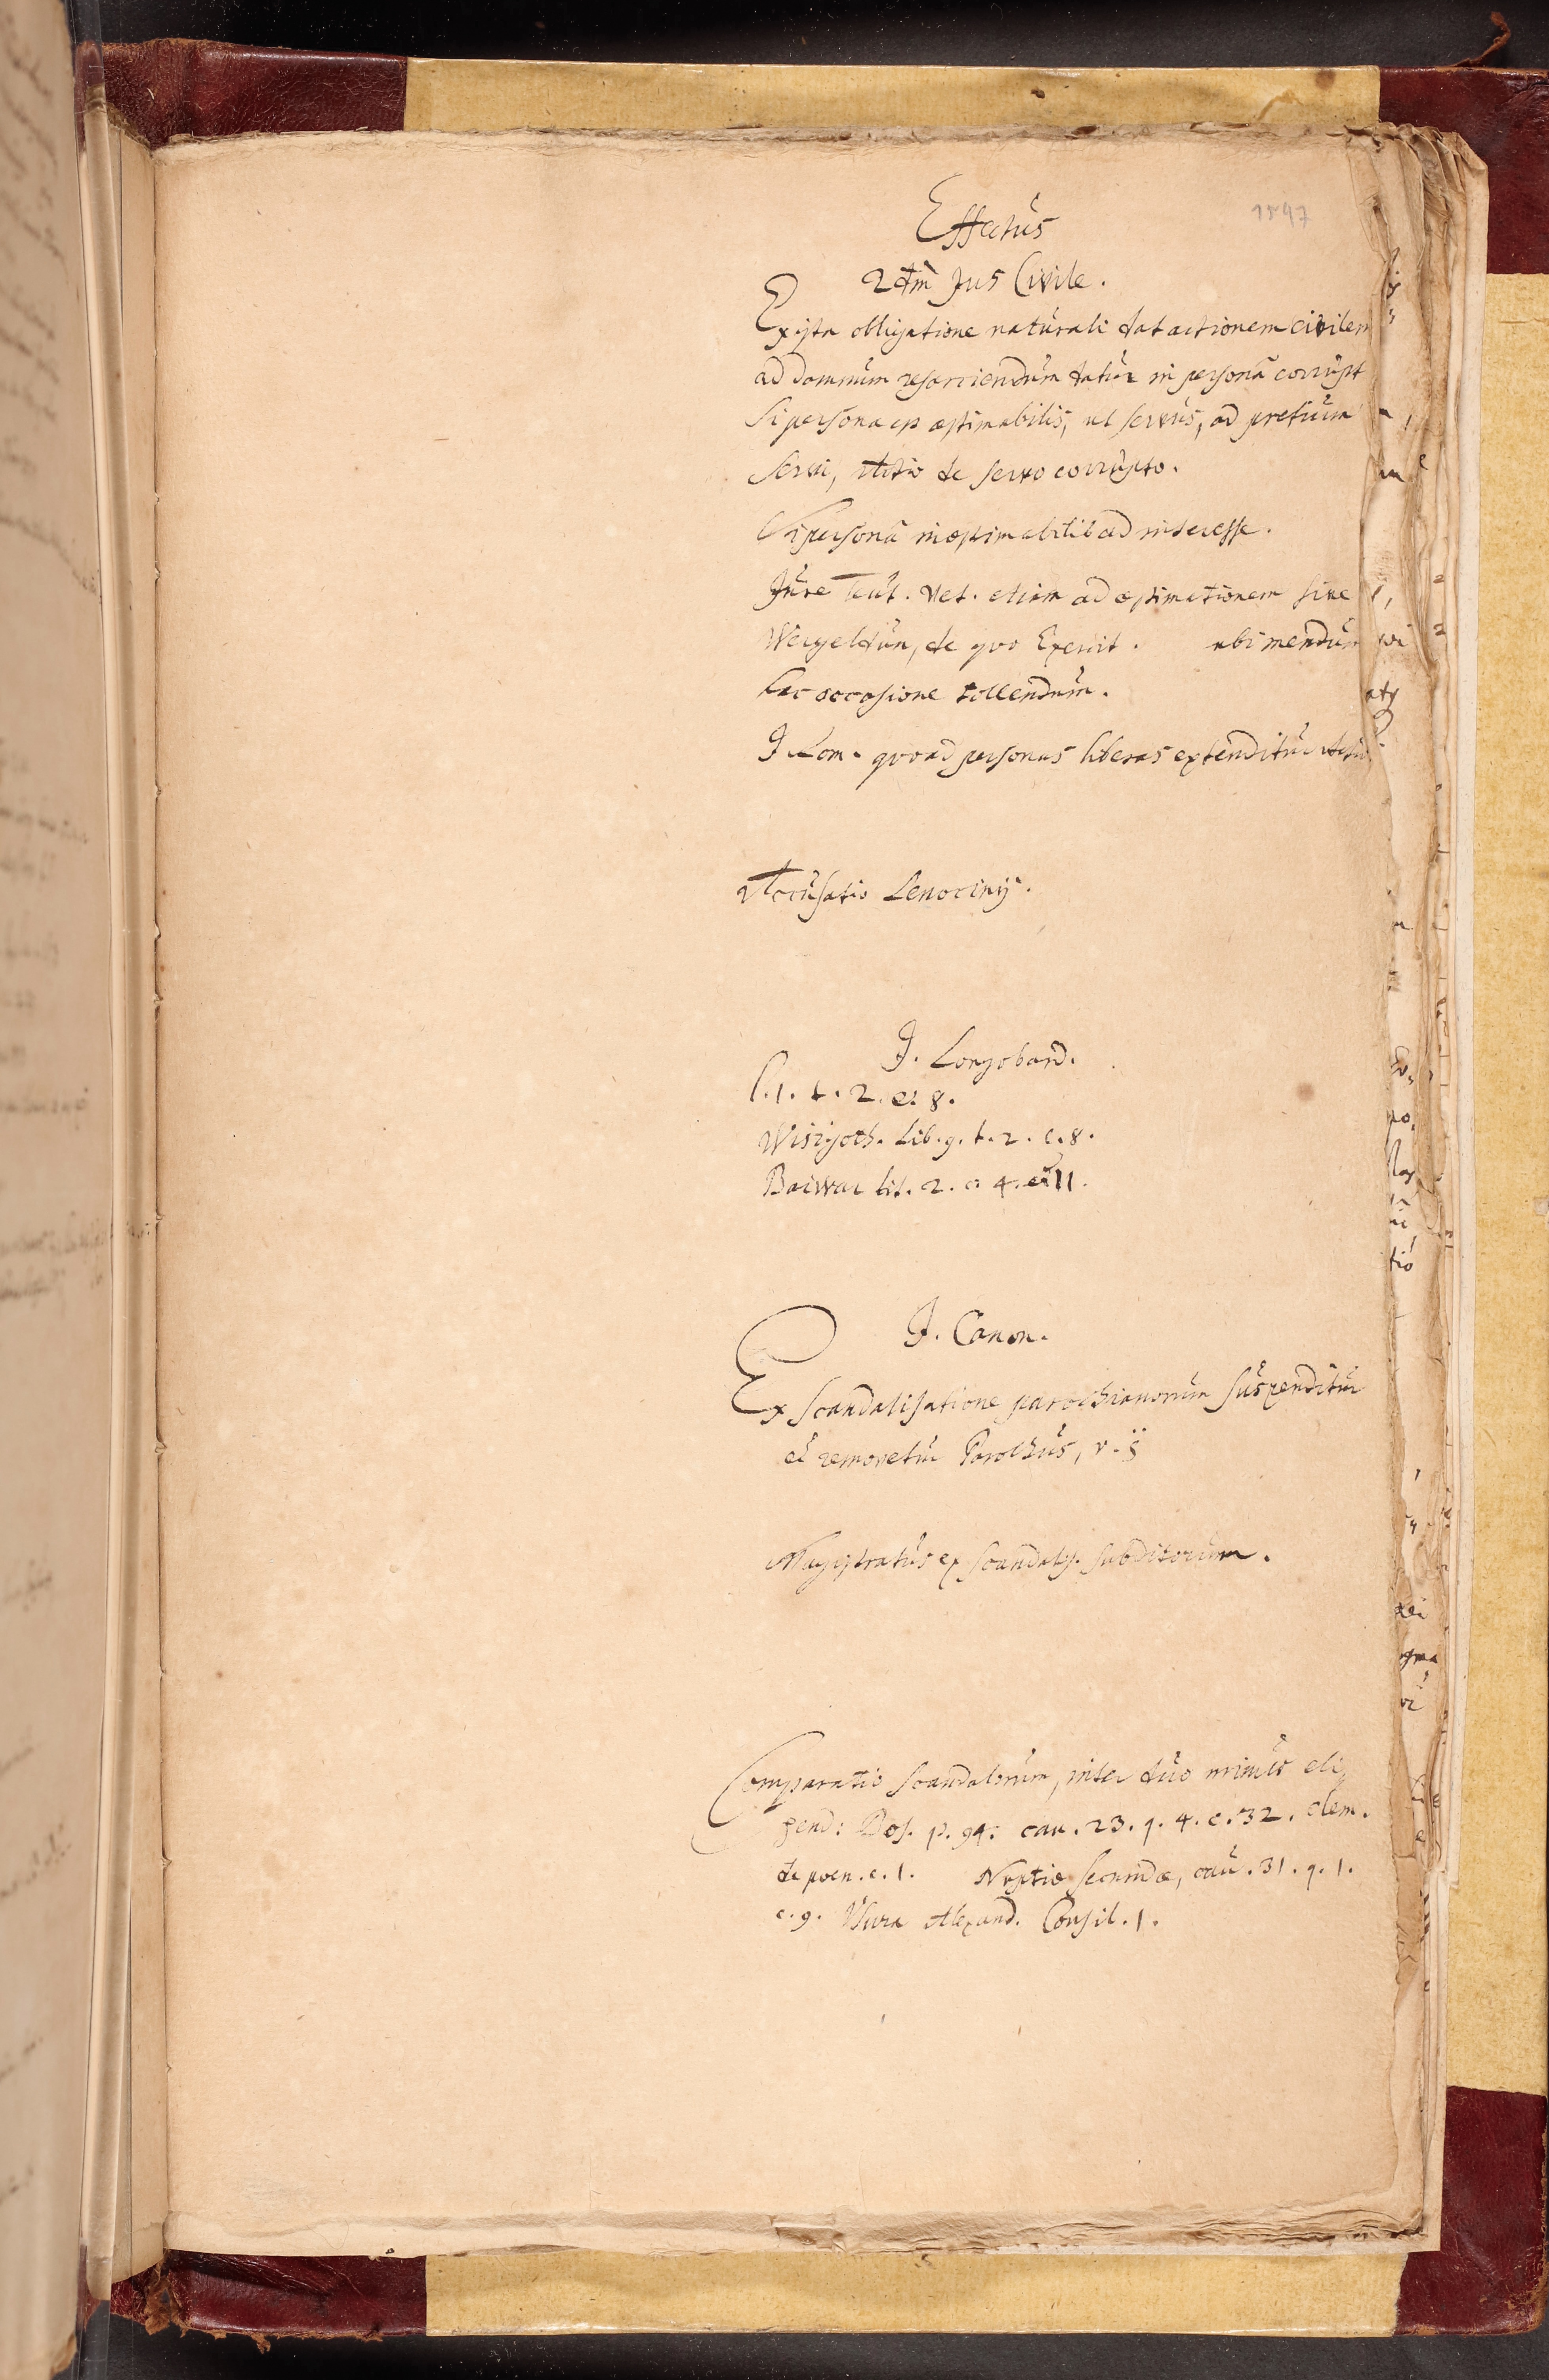 Effectus
1547
2dm Jus Civile.
Ex ista obligatione naturali dat actionem civilem
ad damnum resarciendum datur in persona corrupt
Si persona est æstimabilis, ut servus, ad pretium
Servi, Actio de servo corrupto.
Si persona inæstimabilis ad interesse.
Jure Teut. Vet. etiam ad æstimationem sive
Wergeldum, de quo Exercit. ubi mendum
hac occasione tollendum.
J. Rom. quoad personas liberas extenditur
Accusatio Lenocinij.
J. Longobard.
l. 1. t. 2. c. 8.
Wisigoth. Lib. 9. t. 2. c. 8.
Baiwar tit. 2. c. 4. et 11.
J. Canon.
Ex scandalisatione parochianorum suspenditur
et removetur Parochus, v. §
Magistratus ex scandalis. subditorum.
Comparatio scandalorum, inter duo minus eli,
gend: Bos. p. 94. cau. 23. q. 4. c. 32. clem.
de poen. c. 1. Nuptiæ secundæ, cau. 31. q. 1.
c. 9. Usura Alexand. Consil. 1.